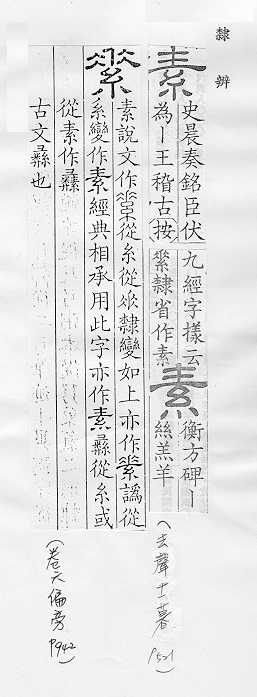 隸辨
素
史晨奏銘臣伏
為｜王稽古按
九經字樣云
𦃃隸省作素
素
衡方碑｜
絲羔羊
(去聲十一暮 P521)
𦃃
素說文作𦃃從糸從𠂹隸變如上亦作𦃃譌從
系變作素經典相承用此字亦作素彝從糸或
從素作彝
古文彝也
(卷六偏旁 P942)